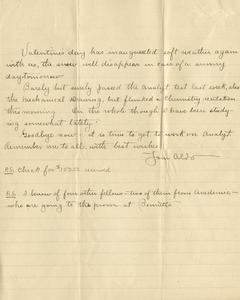 Valentine's day has inaugurated soft weather again
with us, the snow will disappear in case of a sunny
day tomorrow.
Barely but surely passed the Analyt test last week, also
the Mechanical Drawing, but flunked a Chemistry recitation
this morning. On the whole though I have been study-
ing somewhat lately.
Goodbye now - it is time to get to work on Analyt
Remember me to all, with best wishes
P.S. Check for received
P.S. I know of four other fellows - two of them from Academic -
who are going to the prom at